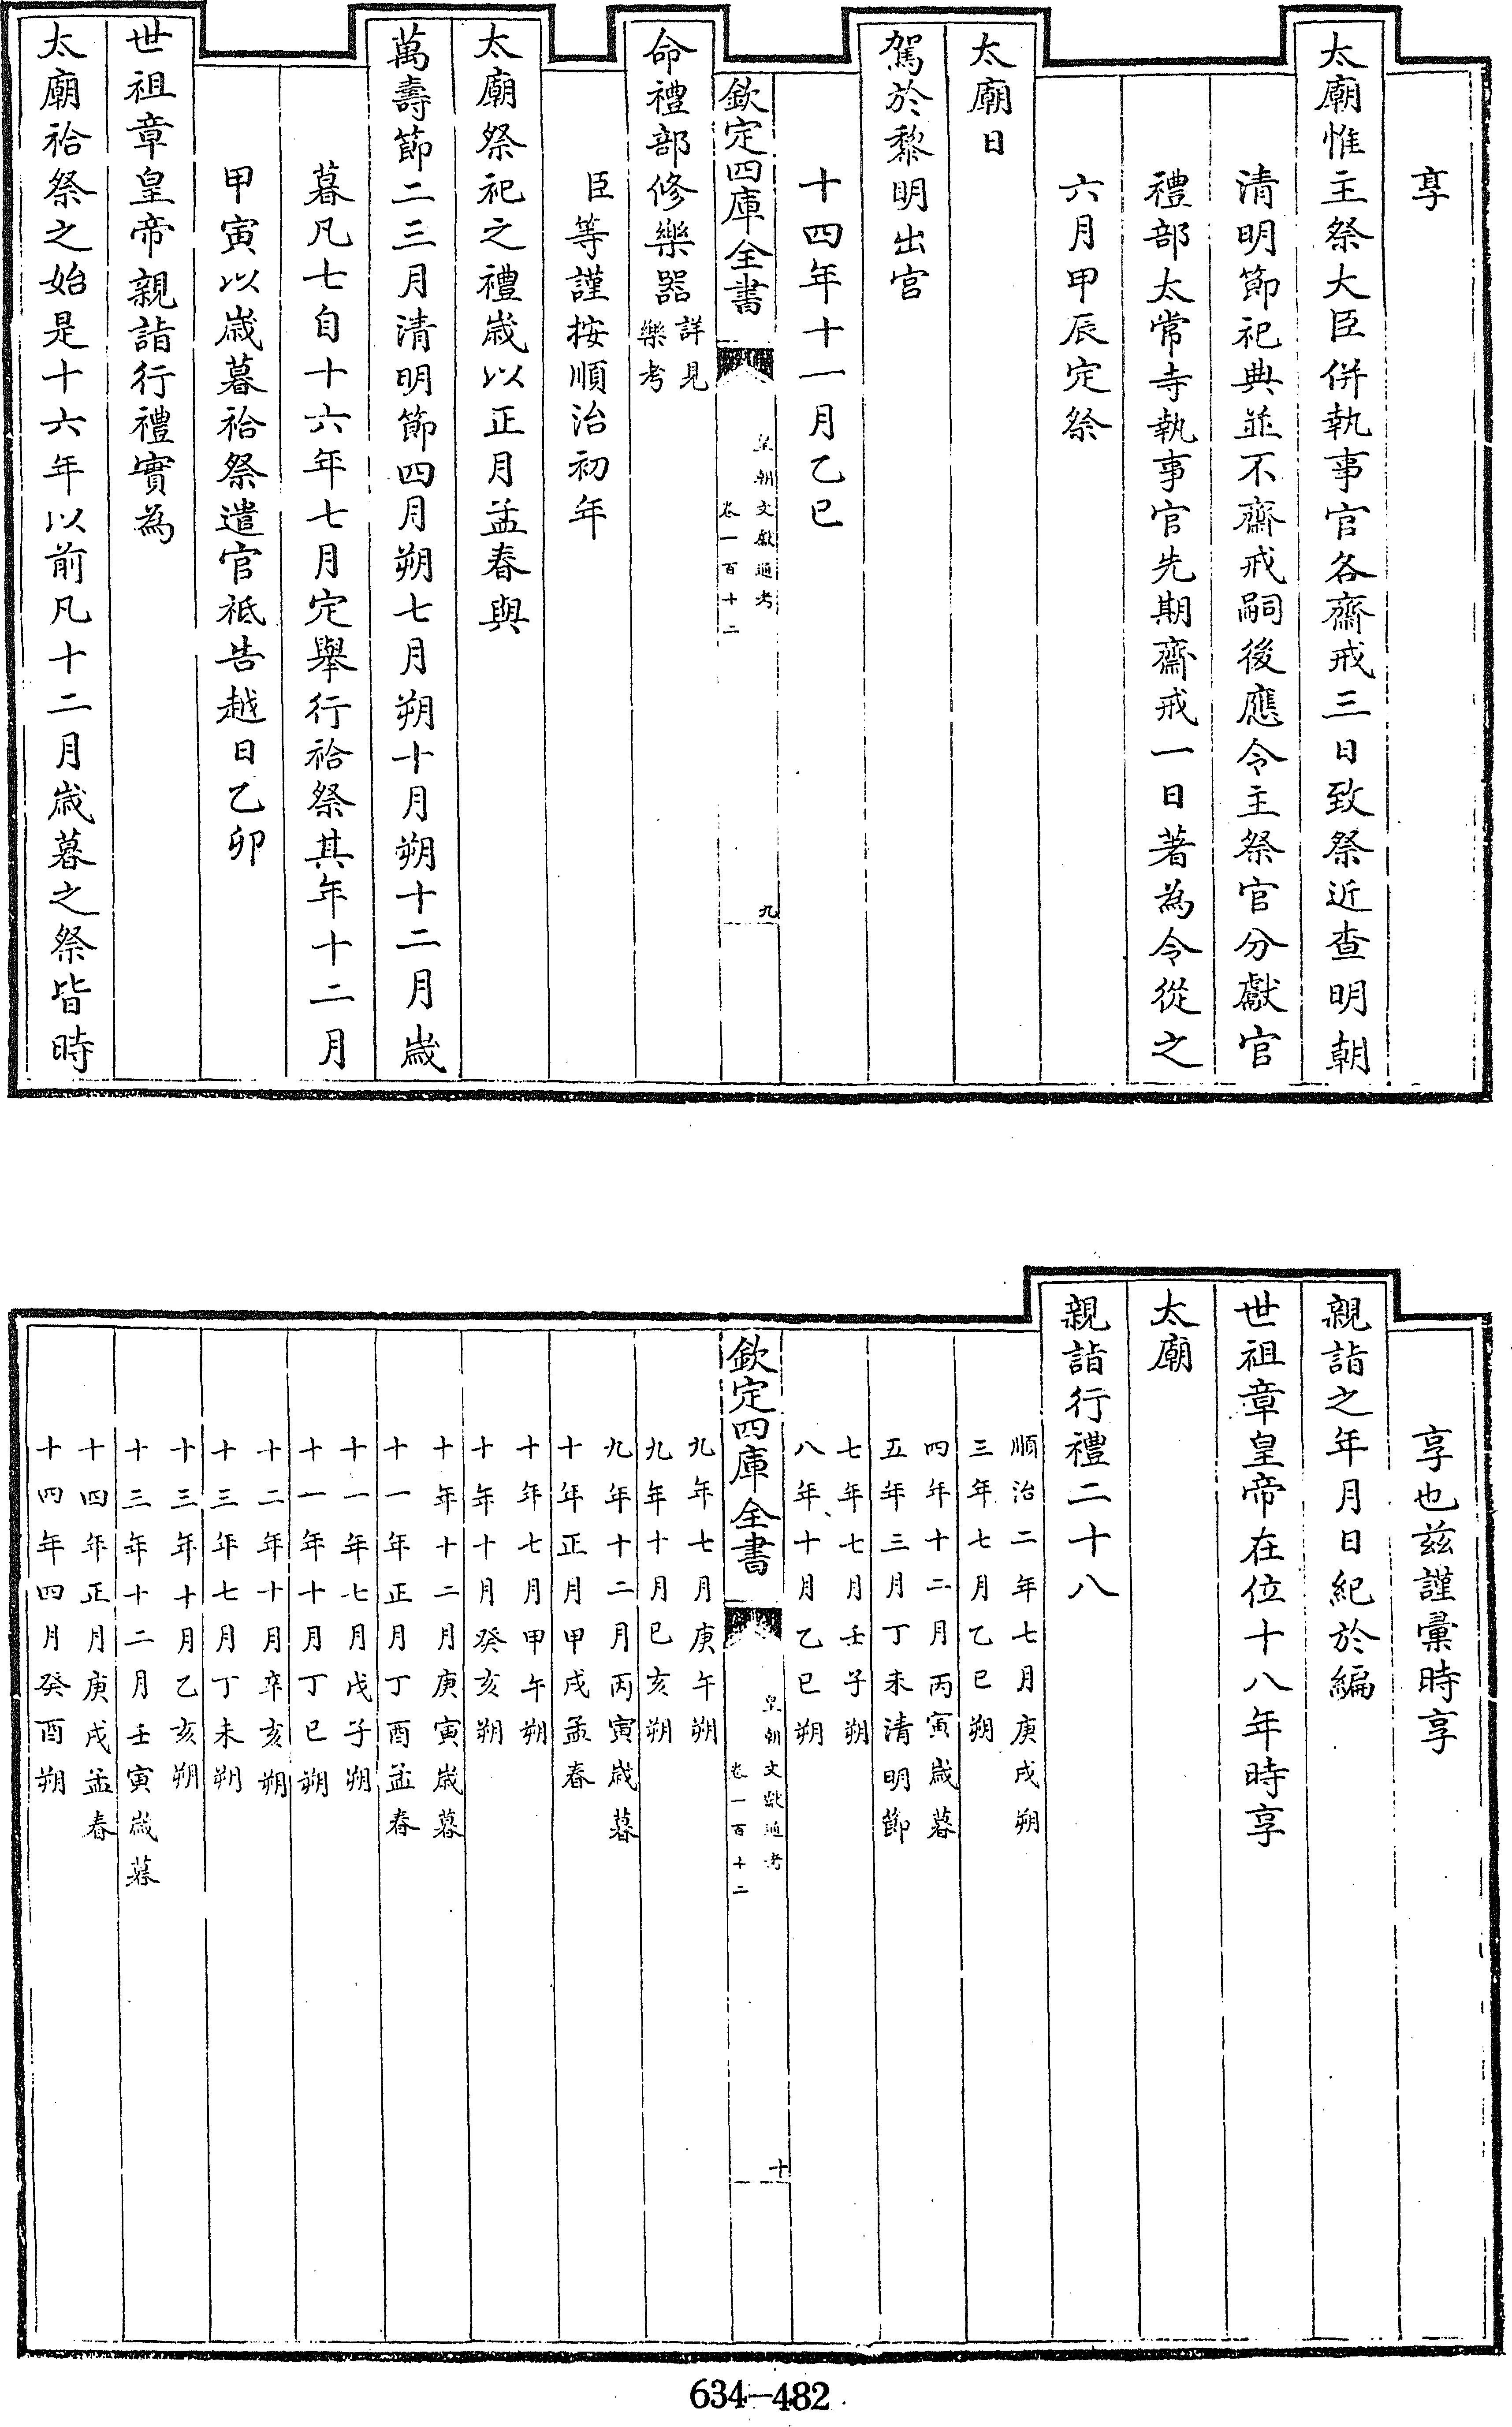 享
太廟惟主祭大臣併執事官各齋戒三日致祭近查明朝
清明節祀典並不齋戒嗣後應令主祭官分獻官
禮部太常寺執事官先期齋戒一日著為令從之
六月甲辰定祭
太廟日
駕於黎明出宫
十四年十一月乙巳
欽定四庫全書
皇朝文獻通考
卷一百十二
九
命禮部修樂器詳見
樂考
臣等謹按順治初年
太廟祭祀之禮歲以正月孟春與
萬壽節二三月清明節四月朔七月朔十月朔十二月歲
暮凡七自十六年七月定舉行祫祭其年十二月
甲寅以歲暮祫祭遣官祗告越日乙卯
世祖章皇帝親詣行禮實為
太廟祫祭之始是十六年以前凡十二月歲暮之祭皆時
享也兹謹彚時享
親詣之年月日紀於編
世祖章皇帝在位十八年時享
太廟
親詣行禮二十八
順治二年七月庚戌朔
三年七月乙巳朔
四年十二月丙寅歲暮
五年三月丁未清明節
七年七月壬子朔
八年十月乙巳朔
欽定四庫全書
皇朝文獻通考
卷一百十二
十
九年七月庚午朔
九年十月巳亥朔
九年十二月丙寅歲暮
十年正月甲戌孟春
十年七月甲午朔
十年十月癸亥朔
十年十二月庚寅歲暮
十一年正月丁酉孟春
十一年七月戊子朔
十一年十月丁巳朔
十二年十月辛亥朔
十三年七月丁未朔
十三年十月乙亥朔
十三年十二月壬寅歲暮
十四年正月庚戌孟春
十四年四月癸酉朔
634-482